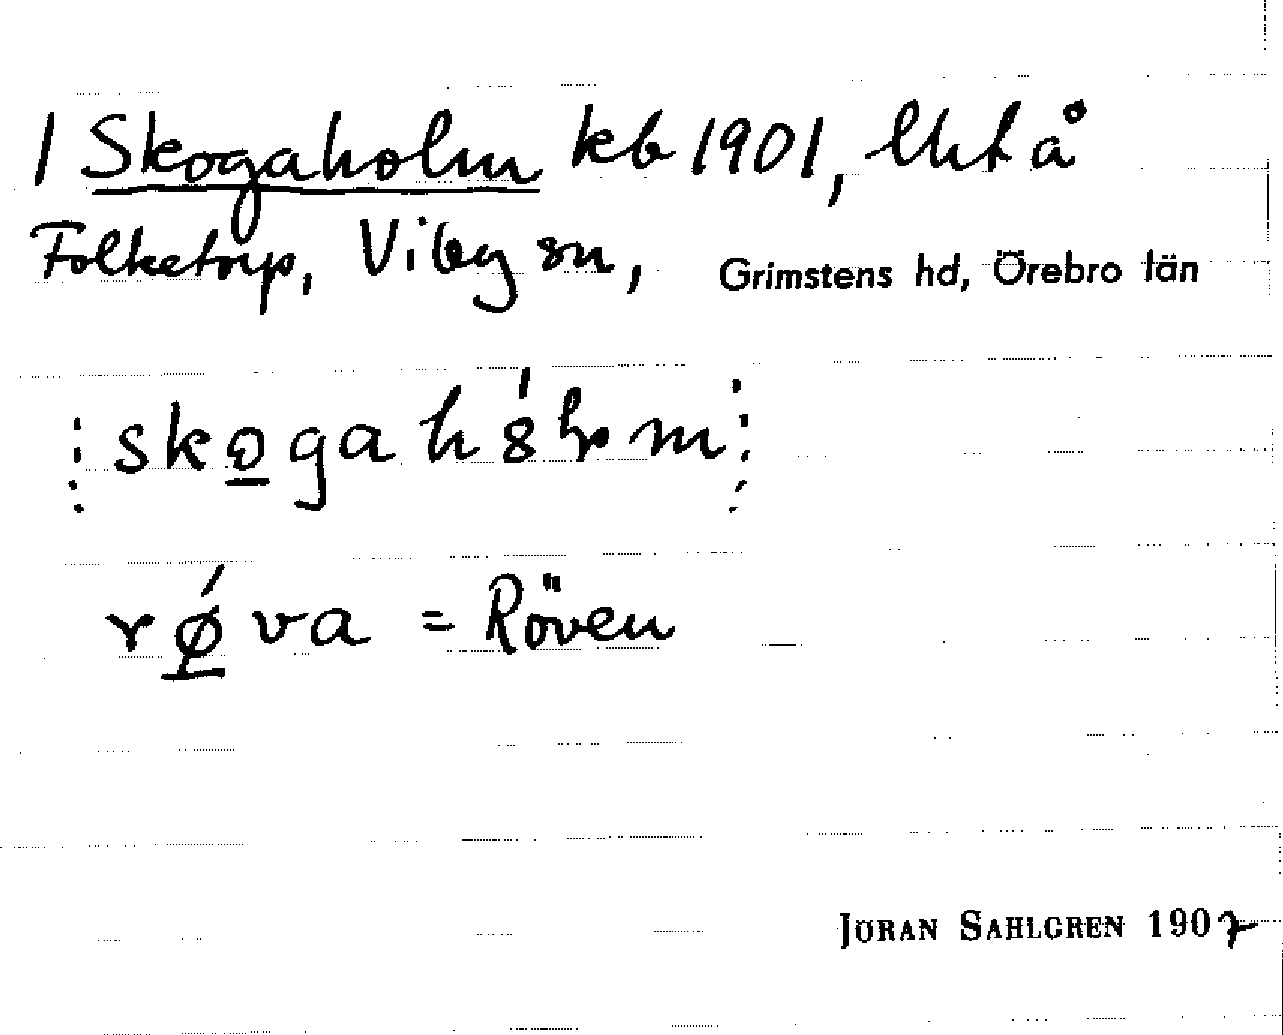 1 Skogaholm kb 1901, Uht å
Folketorp, Viby sn, Grimstens hd, Örebro län
skogahólm
rǿva = Röven
JÖRAN SAHLGREN 1907